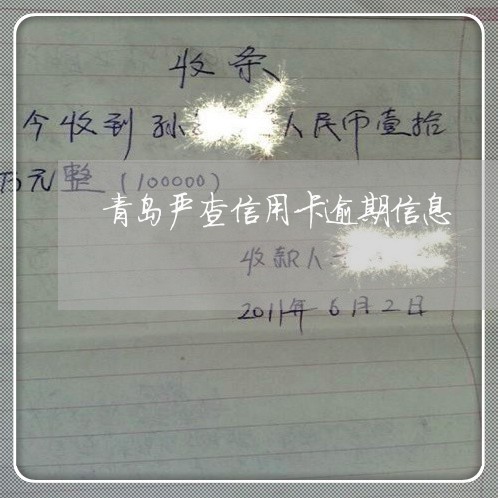 收条
今收到孙 人民币壹拾
万元整（100000）
青岛严查信用卡逾期信息
收款人
2011年6月2日